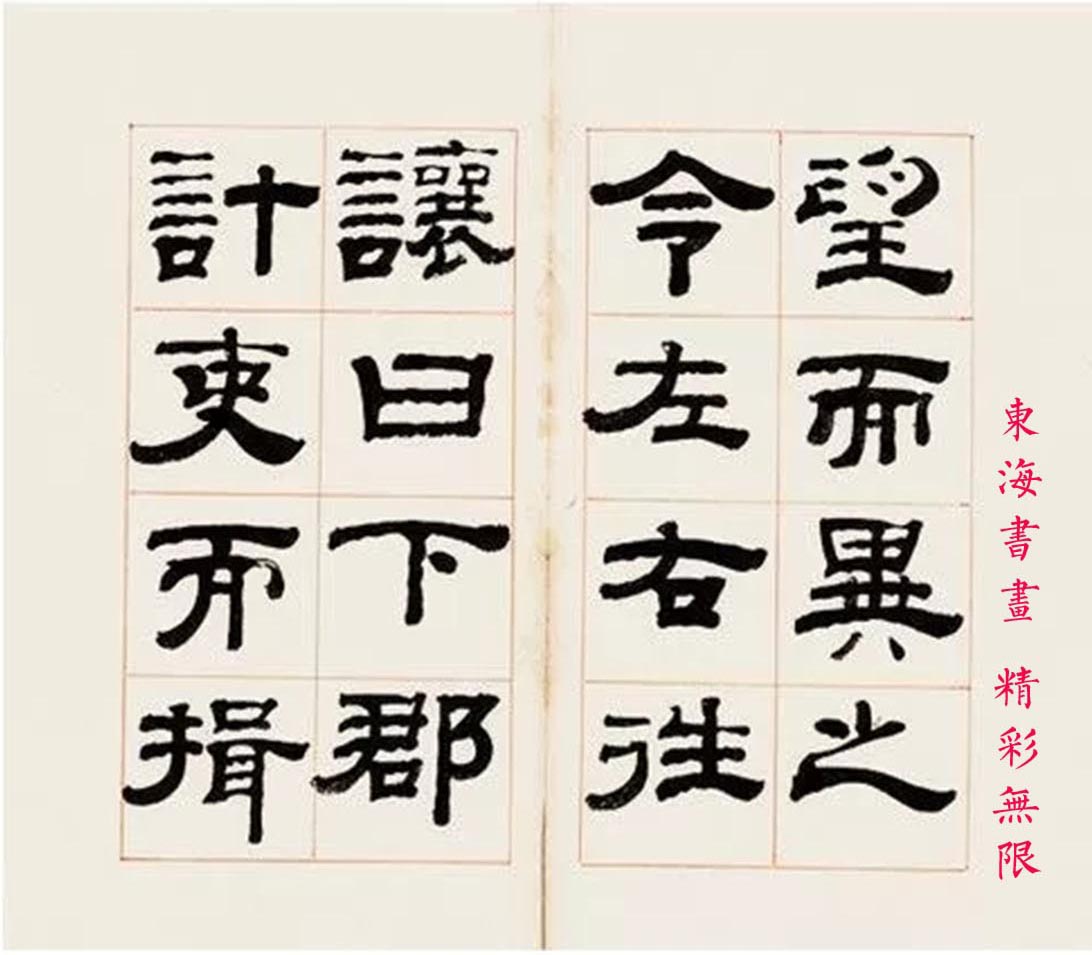 望而異之
令左右往
讓曰下郡
計吏而揖
東海書畫 精彩無限